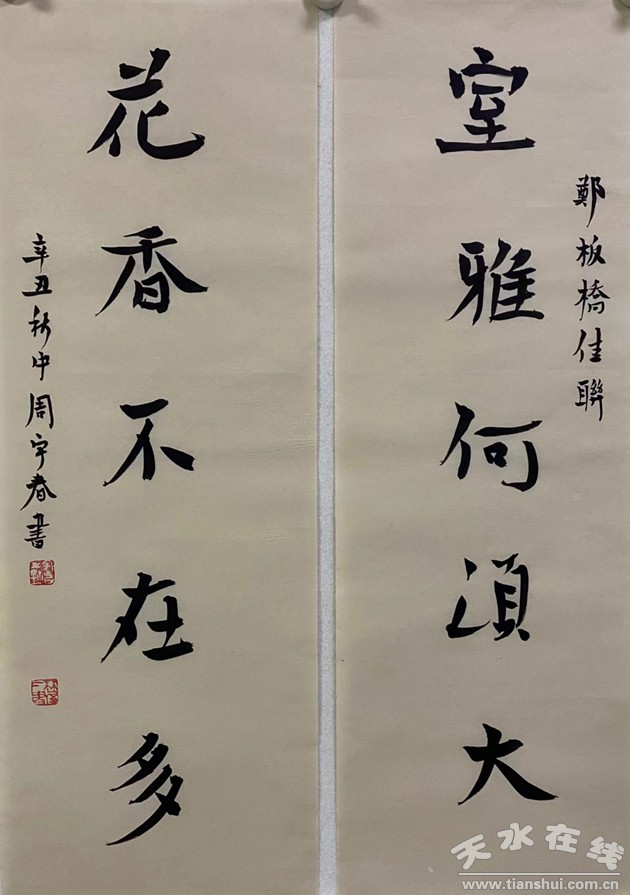 鄭板橋佳聯
室雅何須大
花香不在多
辛丑秋中周宇春書
天水在线
www.tianshui.com.cn